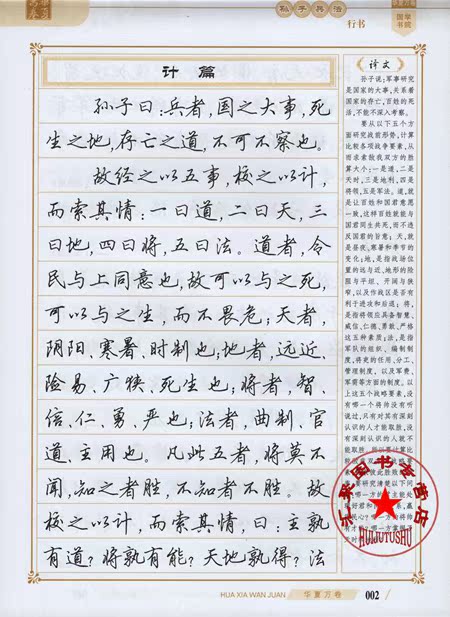 孙子兵法
国学
书院
行书
计篇
孙子曰:兵者,国之大事,死
生之地,存亡之道,不可不察也。
故经之以五事,校之以计,
而索其情:一曰道,二曰天,三
曰地,四曰将,五曰法。道者,令
民与上同意也,故可以与之死,
可以与之生,而不畏危;天者,
阴阳、寒暑、时制也;地者,远近、
险易、广狭、死生也;将者,智、
信、仁、勇、严也;法者,曲制、官
道、主用也。凡此五者,将莫不
闻,知之者胜,不知者不胜。故
校之以计,而索其情,曰:主孰
有道?将孰有能?天地孰得?法
译文
孙子说:军事研究
是国家的大事,关系着
国家的存亡,百姓的死
活,不能不深入考察。
要从以下五个方
面研究战前形势,计算
比较各项战争要素,从
而求索敌我双方的胜
算大小:一是道,二是
天时,三是地利,四是
将领,五是军法。道,就
是让百姓和国君意愿
一致,这样百姓就能与
国君同生共死,而不违
反国君的旨意;天,就
是昼夜、寒暑和季节的
变化;地,是指战场位
置的远与近、地形的险
阻与平坦、开阔与狭
窄,以及作战区是否有
利于进攻和后退;将,
是指将领应具备智慧、
威信、仁德、勇敢、严格
这五种素质;法,是指
军队的组织、编制制
度,将吏的任用、分工、
管理制度,以及军费、
军需等方面的制度。以
上这五个战略要素,没
有哪一个将帅没有听
说过,只有对其有深刻
认识的人才能取胜,没
有深刻认识的人就不
能取胜。
汇聚图书专营店
HUIJUTUSHU
HUA XIA WAN JUAN
华夏万卷
002